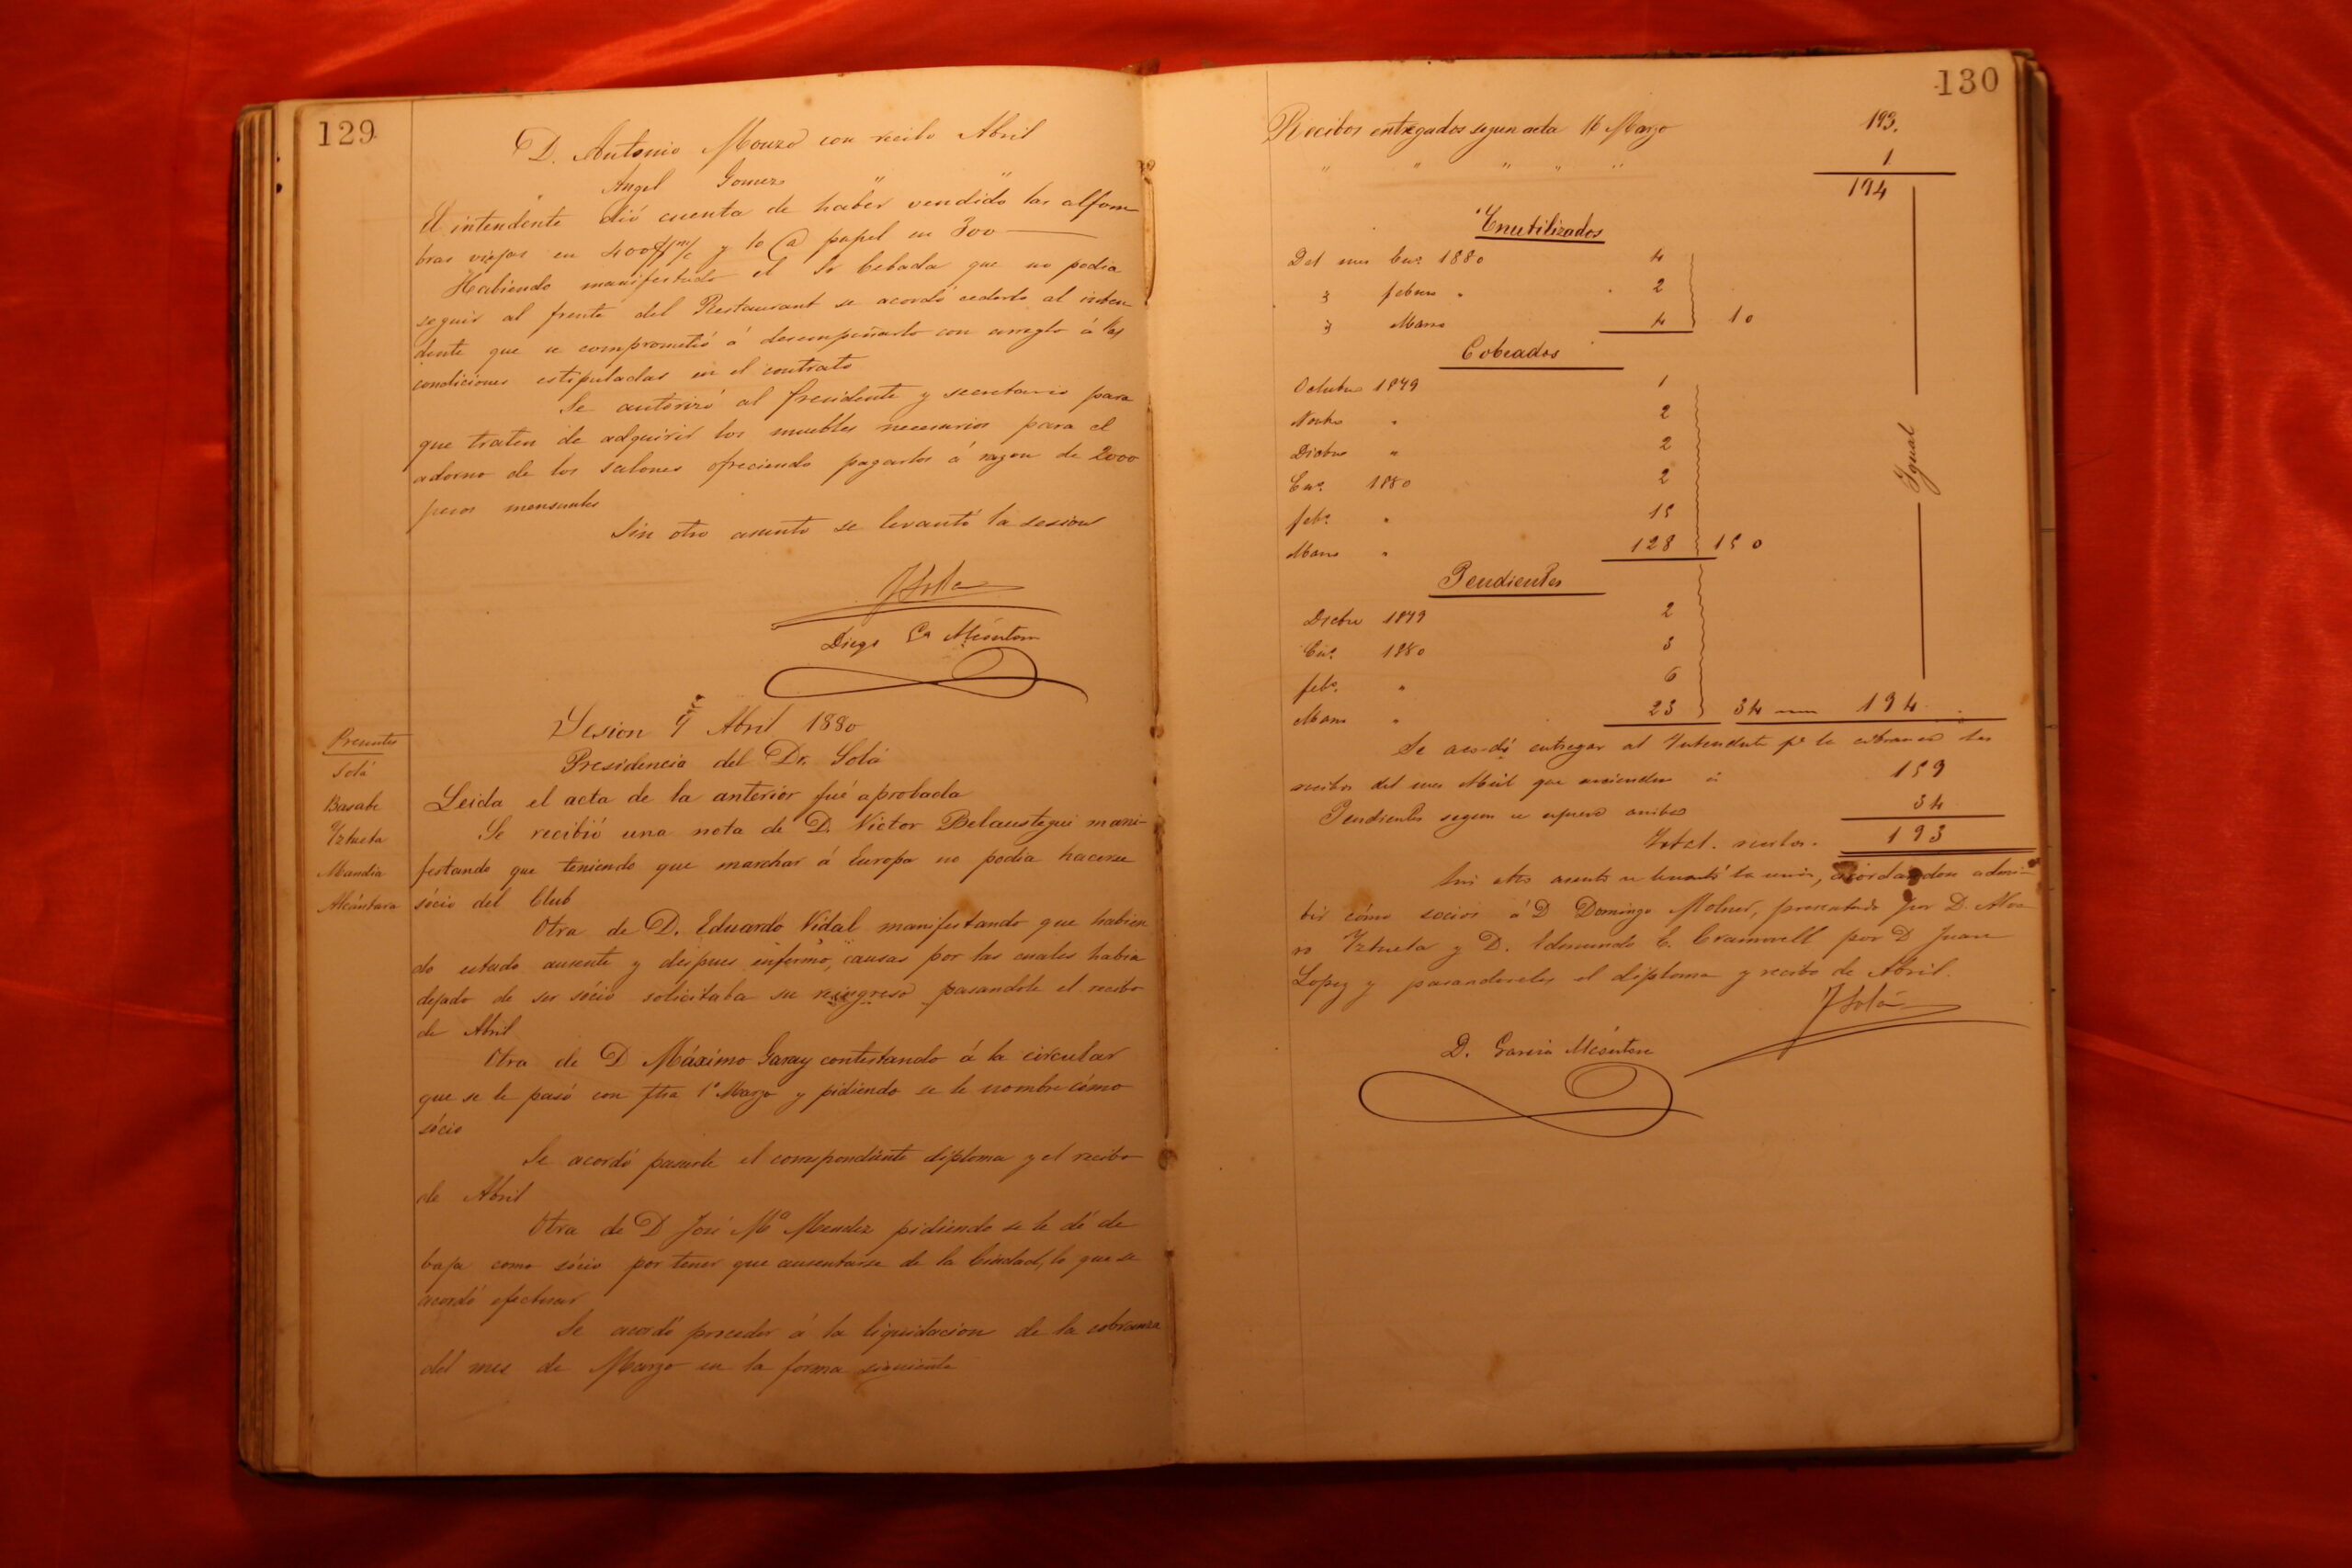 129
D. Antonio Mouzo con recibo Abril
" Angel Gomez " "
El intendente dió cuenta de haber vendido las alfom
bras viejas en 400 $ m/c y 10 @ papel en 300
Habiendo manifestado el Sr Cebada que no podia
seguir al frente del Restaurant se acordó cederlo al inten
dente que se comprometió á desempeñarlo con arreglo á las
condiciones estipuladas en el contrato
Se autorizó al Presidente y secretario para
que traten de adquirir los muebles necesarios para el
adorno de los salones ofreciendo pagarlos á razon de 2000
pesos mensuales
Sin otro asunto se levantó la sesion
Diego Ga Alcántara
Sesion 9 Abril 1880
Presidencia del Dr. Solá
Presentes
Solá
Basabe
Yztueta
Mandia
Alcántara
Leida el acta de la anterior fué aprobada
Se recibió una nota de D. Victor Belaustegui mani-
festando que teniendo que marchar á Europa no podia hacerse
sócio del Club
Otra de D. Eduardo Vidal manifestando que habien
do estado ausente y despues enfermo, causas por las cuales habia
dejado de ser sócio solicitaba su reingreso pasandole el recibo
de Abril
Otra de D Máximo Garay contestando á la circular
que se le pasó con fha 1º Marzo y pidiendo se le nombre cómo
sócio
Se acordó pasarle el correspondiente diploma y el recibo
de Abril
Otra de D José Mª Mendez pidiendo se le dé de
baja como sócio por tener que ausentarse de la Ciudad, lo que se
acordó efectuar
Se acordó proceder á la liquidacion de la cobranza
del mes de Marzo en la forma siguiente
130
Recibos entregados segun acta 16 Marzo 193.
" " " " " 1
194
Inutilizados
Del mes Eno 1880 4
" febrero " 2
" Marzo 4 10
Cobrados
Octubre 1879 1
Novbre " 2
Dicbre " 2
Eno 1880 2
febo " 15
Marzo " 128 150
Igual
Pendientes
Dicbre 1879 2
Eno 1880 3
febo " 6
Marzo " 23 34 194
Se acordó entregar al Intendente pa la cobranza los
recibos del mes Abril que ascienden á 159
Pendientes segun se espresa arriba 34
Total recibos. 193
Sin otro asunto se levantó la sesion, acordandose admi-
tir cómo socios á D Domingo Molner, presentado por D. Alva
ro Yztueta y D. Edmundo C. Crammell por D Juan
Lopez y pasandoseles el diploma y recibo de Abril.
J Solá
D. Garcia Alcántara